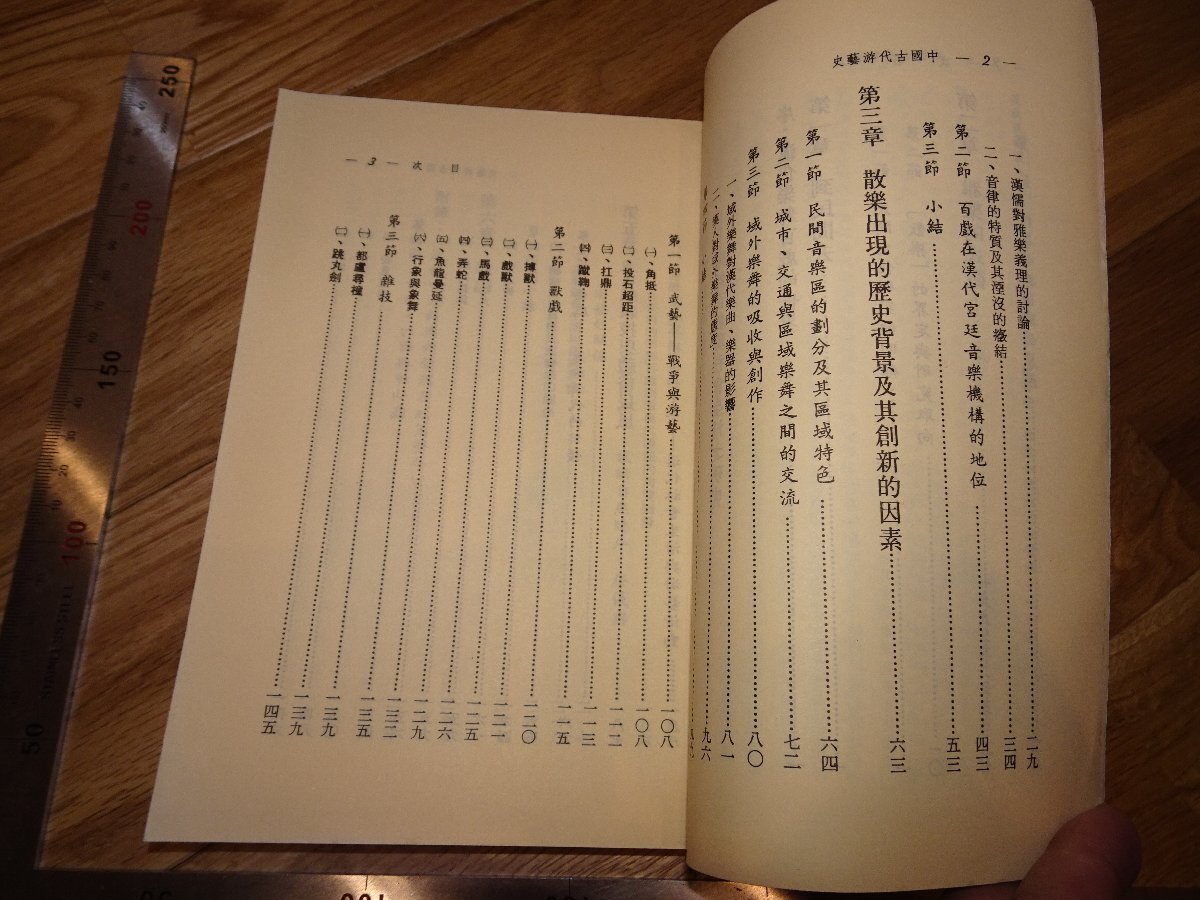 中國古代游藝史 — 2 —
一、漢儒對雅樂義理的討論……二九
二、音律的特質及其湮沒的癥結……三四
第二節 百戲在漢代宮廷音樂機構的地位……四三
第三節 小結……五三
第三章 散樂出現的歷史背景及其創新的因素……六三
第一節 民間音樂區的劃分及其區域特色……六四
第二節 城市、交通與區域樂舞之間的交流……七二
第三節 域外樂舞的吸收與創作……八〇
一、域外樂舞對漢代樂曲、樂器的影響……八一
二、漢人對域外樂舞的……九六
目次 — 3 —
第一節 武藝——戰爭與游藝……一〇八
㈠、角抵……一〇八
㈡、投石超距……一一二
㈢、扛鼎……一一三
㈣、蹴鞠……一一五
第二節 獸戲……一二〇
㈠、搏獸……一二一
㈡、戲獸……一二五
㈢、馬戲……一二六
㈣、弄蛇……一二九
㈤、魚龍曼延……一三二
㈥、行象與象舞……一三五
第三節 雜技……一三九
㈠、都盧尋橦……一三九
㈡、跳丸劍……一四五
250
200
150
100
50